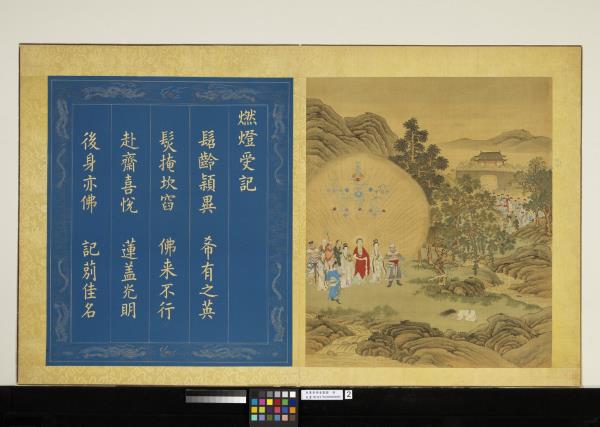 燃燈受記
髫齡穎異　希有之英
髮掩坎窞　佛来不行
赴齋喜悅　蓮盖光明
後身亦佛　記莂佳名
2